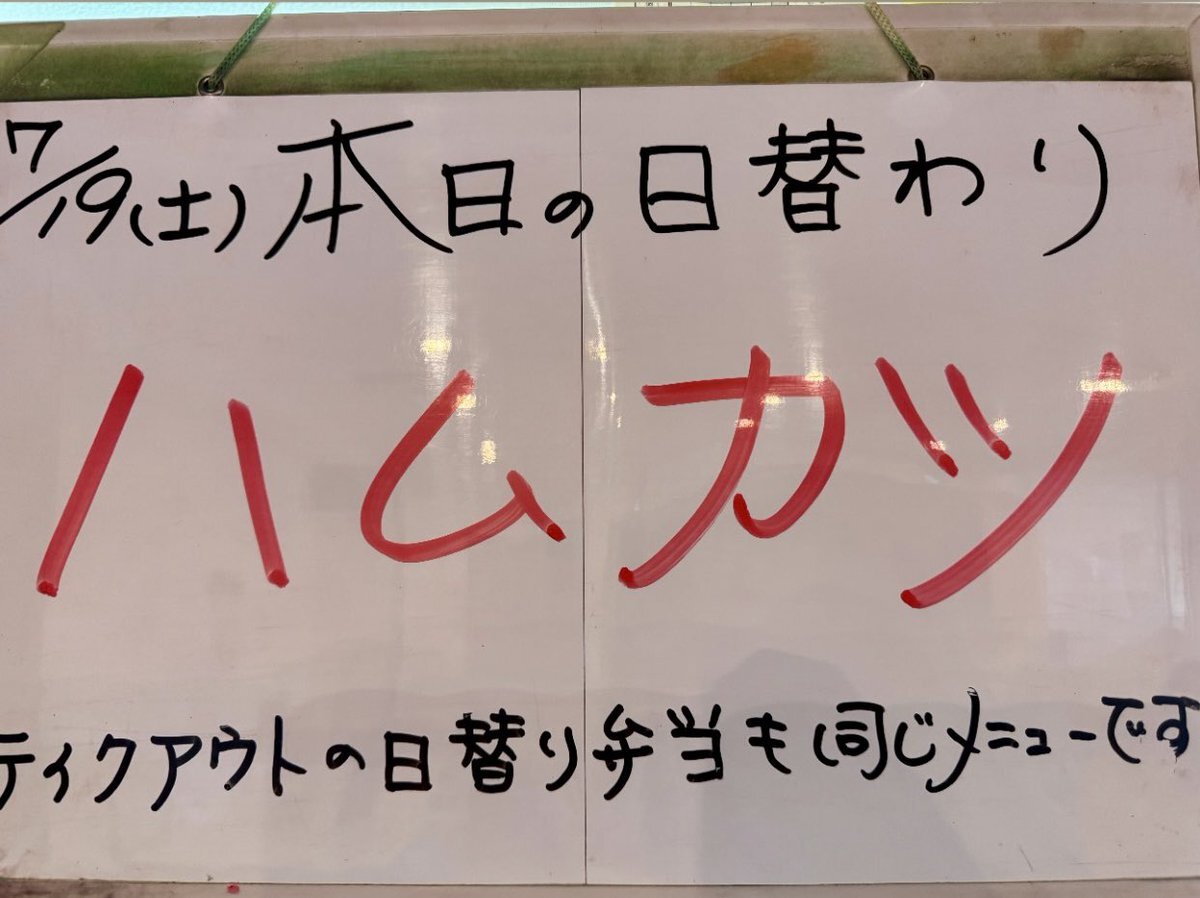 7/19(土)本日の日替わり
ハムカツ
ティクアウトの日替り弁当も同じメニューです